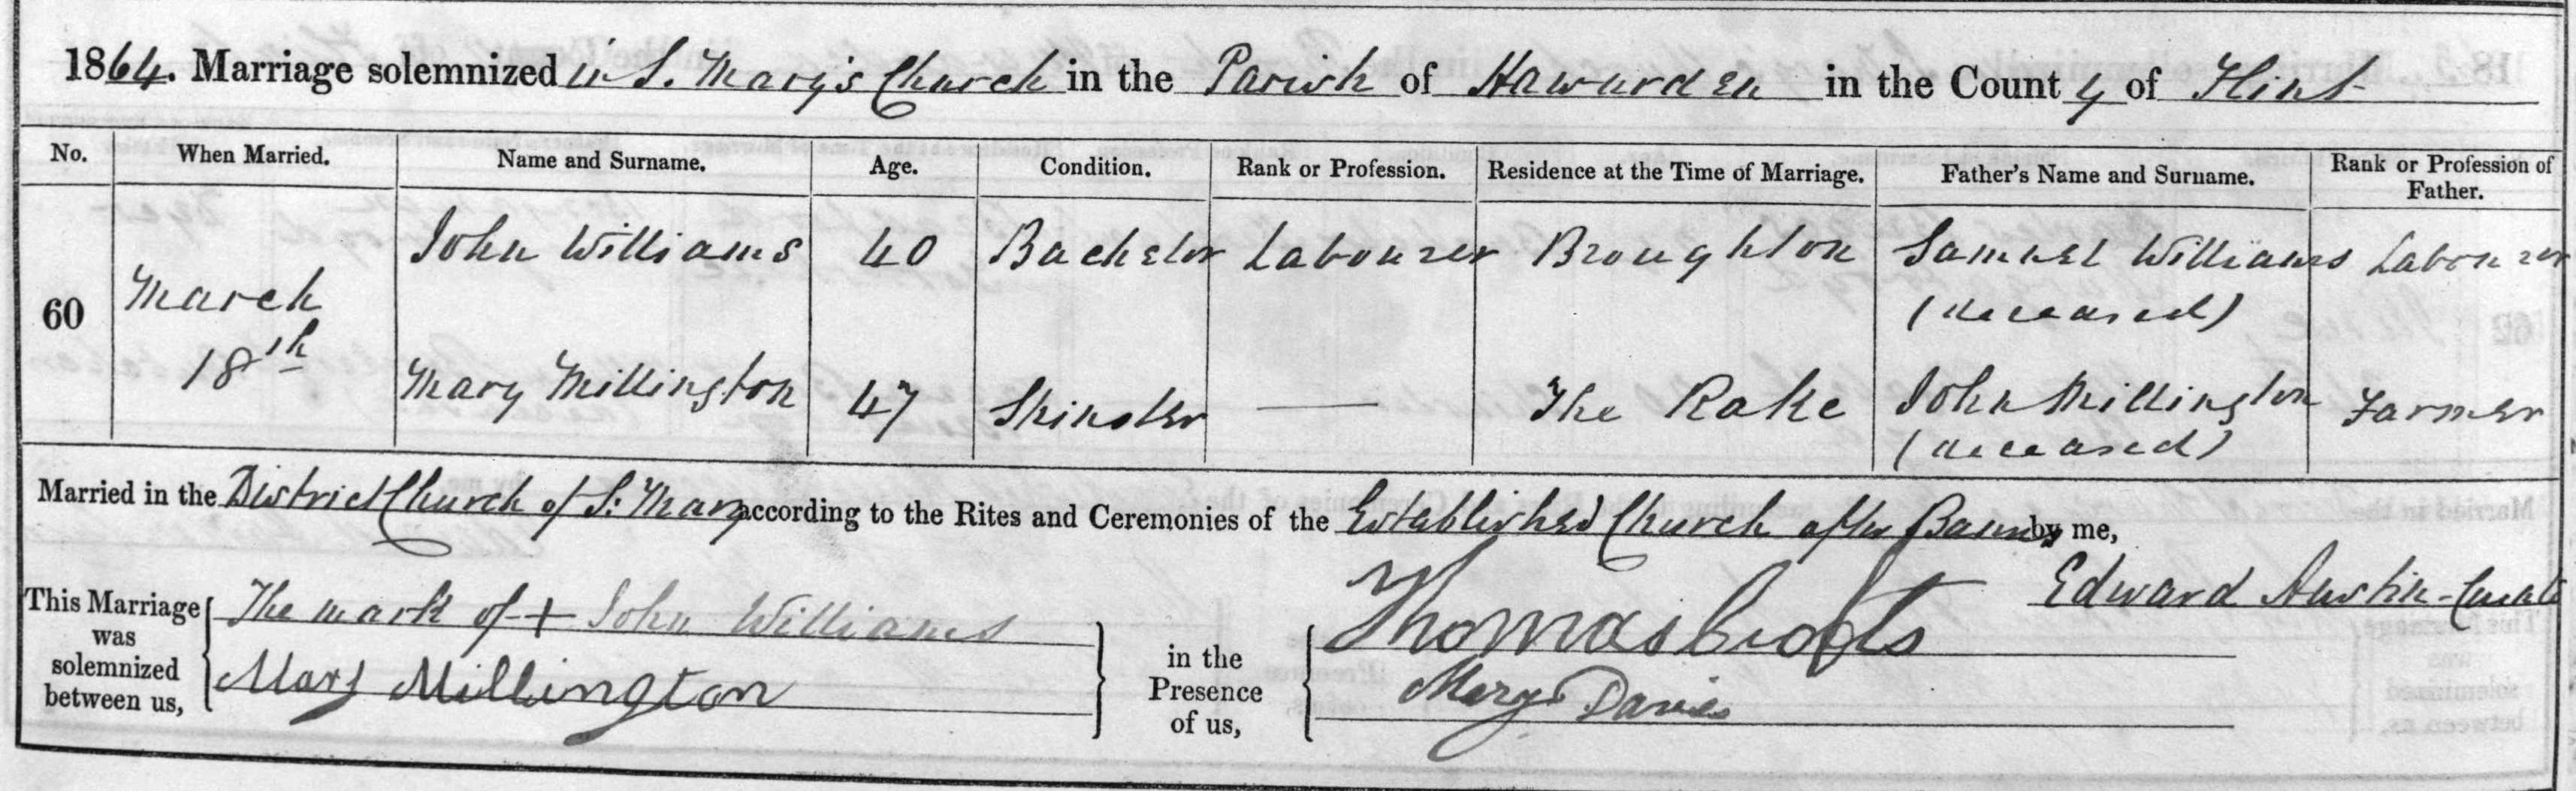 1864. Marriage solemnized in S. Mary's Church in the Parish of Hawarden in the County of Flint
No. When Married. Name and Surname. Age. Condition. Rank or Profession. Residence at the Time of Marriage. Father's Name and Surname. Rank or Profession of Father.
60 March 18th John Williams 40 Bachelor Labourer Broughton Samuel Williams (deceased) Labourer
Mary Millington 47 Spinster — The Rake John Millington (deceased) Farmer
Married in the District Church of S. Mary according to the Rites and Ceremonies of the Established Church after Banns by me,
Edward Austin - Curate
This Marriage was solemnized between us, The mark of + John Williams
Mary Millington
in the Presence of us, Thomas
Mary Davies